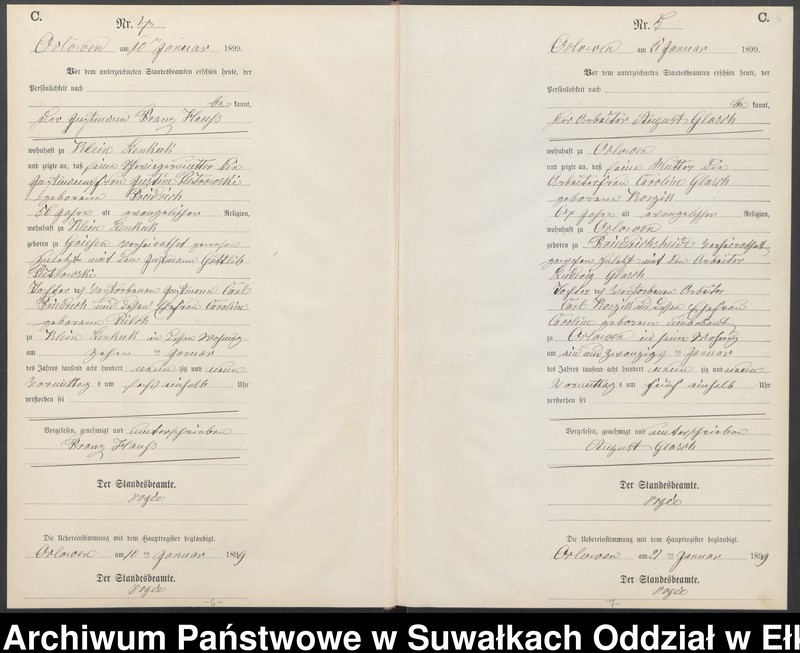 C.
Nr. 4
Orlowen am 10ten Januar 1899.
Vor dem unterzeichneten Standesbeamten erschien heute, der
Persönlichkeit nach
be kannt,
der Franz
wohnhaft zu Klein Lenkuk
und zeigte an, daß seine Schwiegermutter die
Justine Pietrowski
geborene Friedrich
56 Jahre alt evangelischer Religion,
wohnhaft zu Klein Lenkuk
geboren zu verheirathet gewesen
zuletzt mit dem Gottlieb
Tochter des verstorbenen Carl
Friedrich und dessen Ehefrau Caroline
geborene
zu Klein Lenkuk in dessen Wohnung
am zehn ten Januar
des Jahres tausend acht hundert neun zig und neun
Vormittag s um sechs einhalb Uhr
verstorben sei
Vorgelesen, genehmigt und unterschrieben
Franz
Der Standesbeamte.
Vogée
Die Uebereinstimmung mit dem Hauptregister beglaubigt.
Orlowen am 10 ten Januar 1899
Der Standesbeamte.
Vogée
C.
Nr. 5
Orlowen am 21 Januar 1899.
Vor dem unterzeichneten Standesbeamten erschien heute, der
Persönlichkeit nach
be kannt,
der Arbeiter August Glasch
wohnhaft zu Orlowen
und zeigte an, daß seine Mutter die
Arbeiterfrau Caroline Glasch
geborene
Jahre alt evangelischer Religion,
wohnhaft zu Orlowen
geboren zu Friedrichsheide verheirathet
gewesen zuletzt mit dem Arbeiter
Ludwig Glasch
Tochter des verstorbenen Arbeiter
Carl und dessen Ehefrau
Caroline geborene unbekannt
zu Orlowen in seiner Wohnung
am ein und zwanzig ten Januar
des Jahres tausend acht hundert neun zig und neun
Vormittag s um fünf einhalb Uhr
verstorben sei
Vorgelesen, genehmigt und unterschrieben
August Glasch
Der Standesbeamte.
Vogée
Die Uebereinstimmung mit dem Hauptregister beglaubigt.
Orlowen am 21 ten Januar 1899
Der Standesbeamte.
Vogée
Archiwum Państwowe w Suwałkach Oddział w Ełk